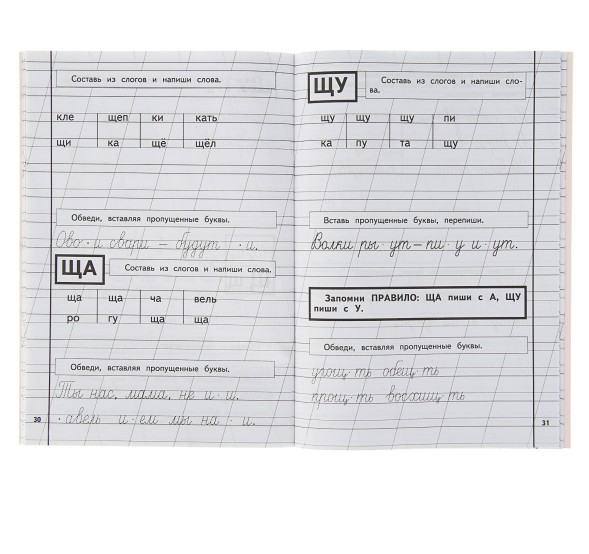 Составь из слогов и напиши слова.
кле щеп ки кать
щи ка щё щёл
Обведи, вставляя пропущенные буквы.
Ово · и свари – будут · и.
ЩА Составь из слогов и напиши слова.
ща ща ча вель
ро гу ща ща
Обведи, вставляя пропущенные буквы.
Ты нас, мама, не и · и.
· авель и · ем мы на · и.
30
ЩУ Составь из слогов и напиши сло-
ва.
щу щу щу пи
ка пу та щу
Вставь пропущенные буквы, перепиши.
Волки ры · ут – пи · у и · ут.
Запомни ПРАВИЛО: ЩА пиши с А, ЩУ
пиши с У.
Обведи, вставляя пропущенные буквы.
угощ · ть обещ · ть
прощ · ть восхищ · ть
31